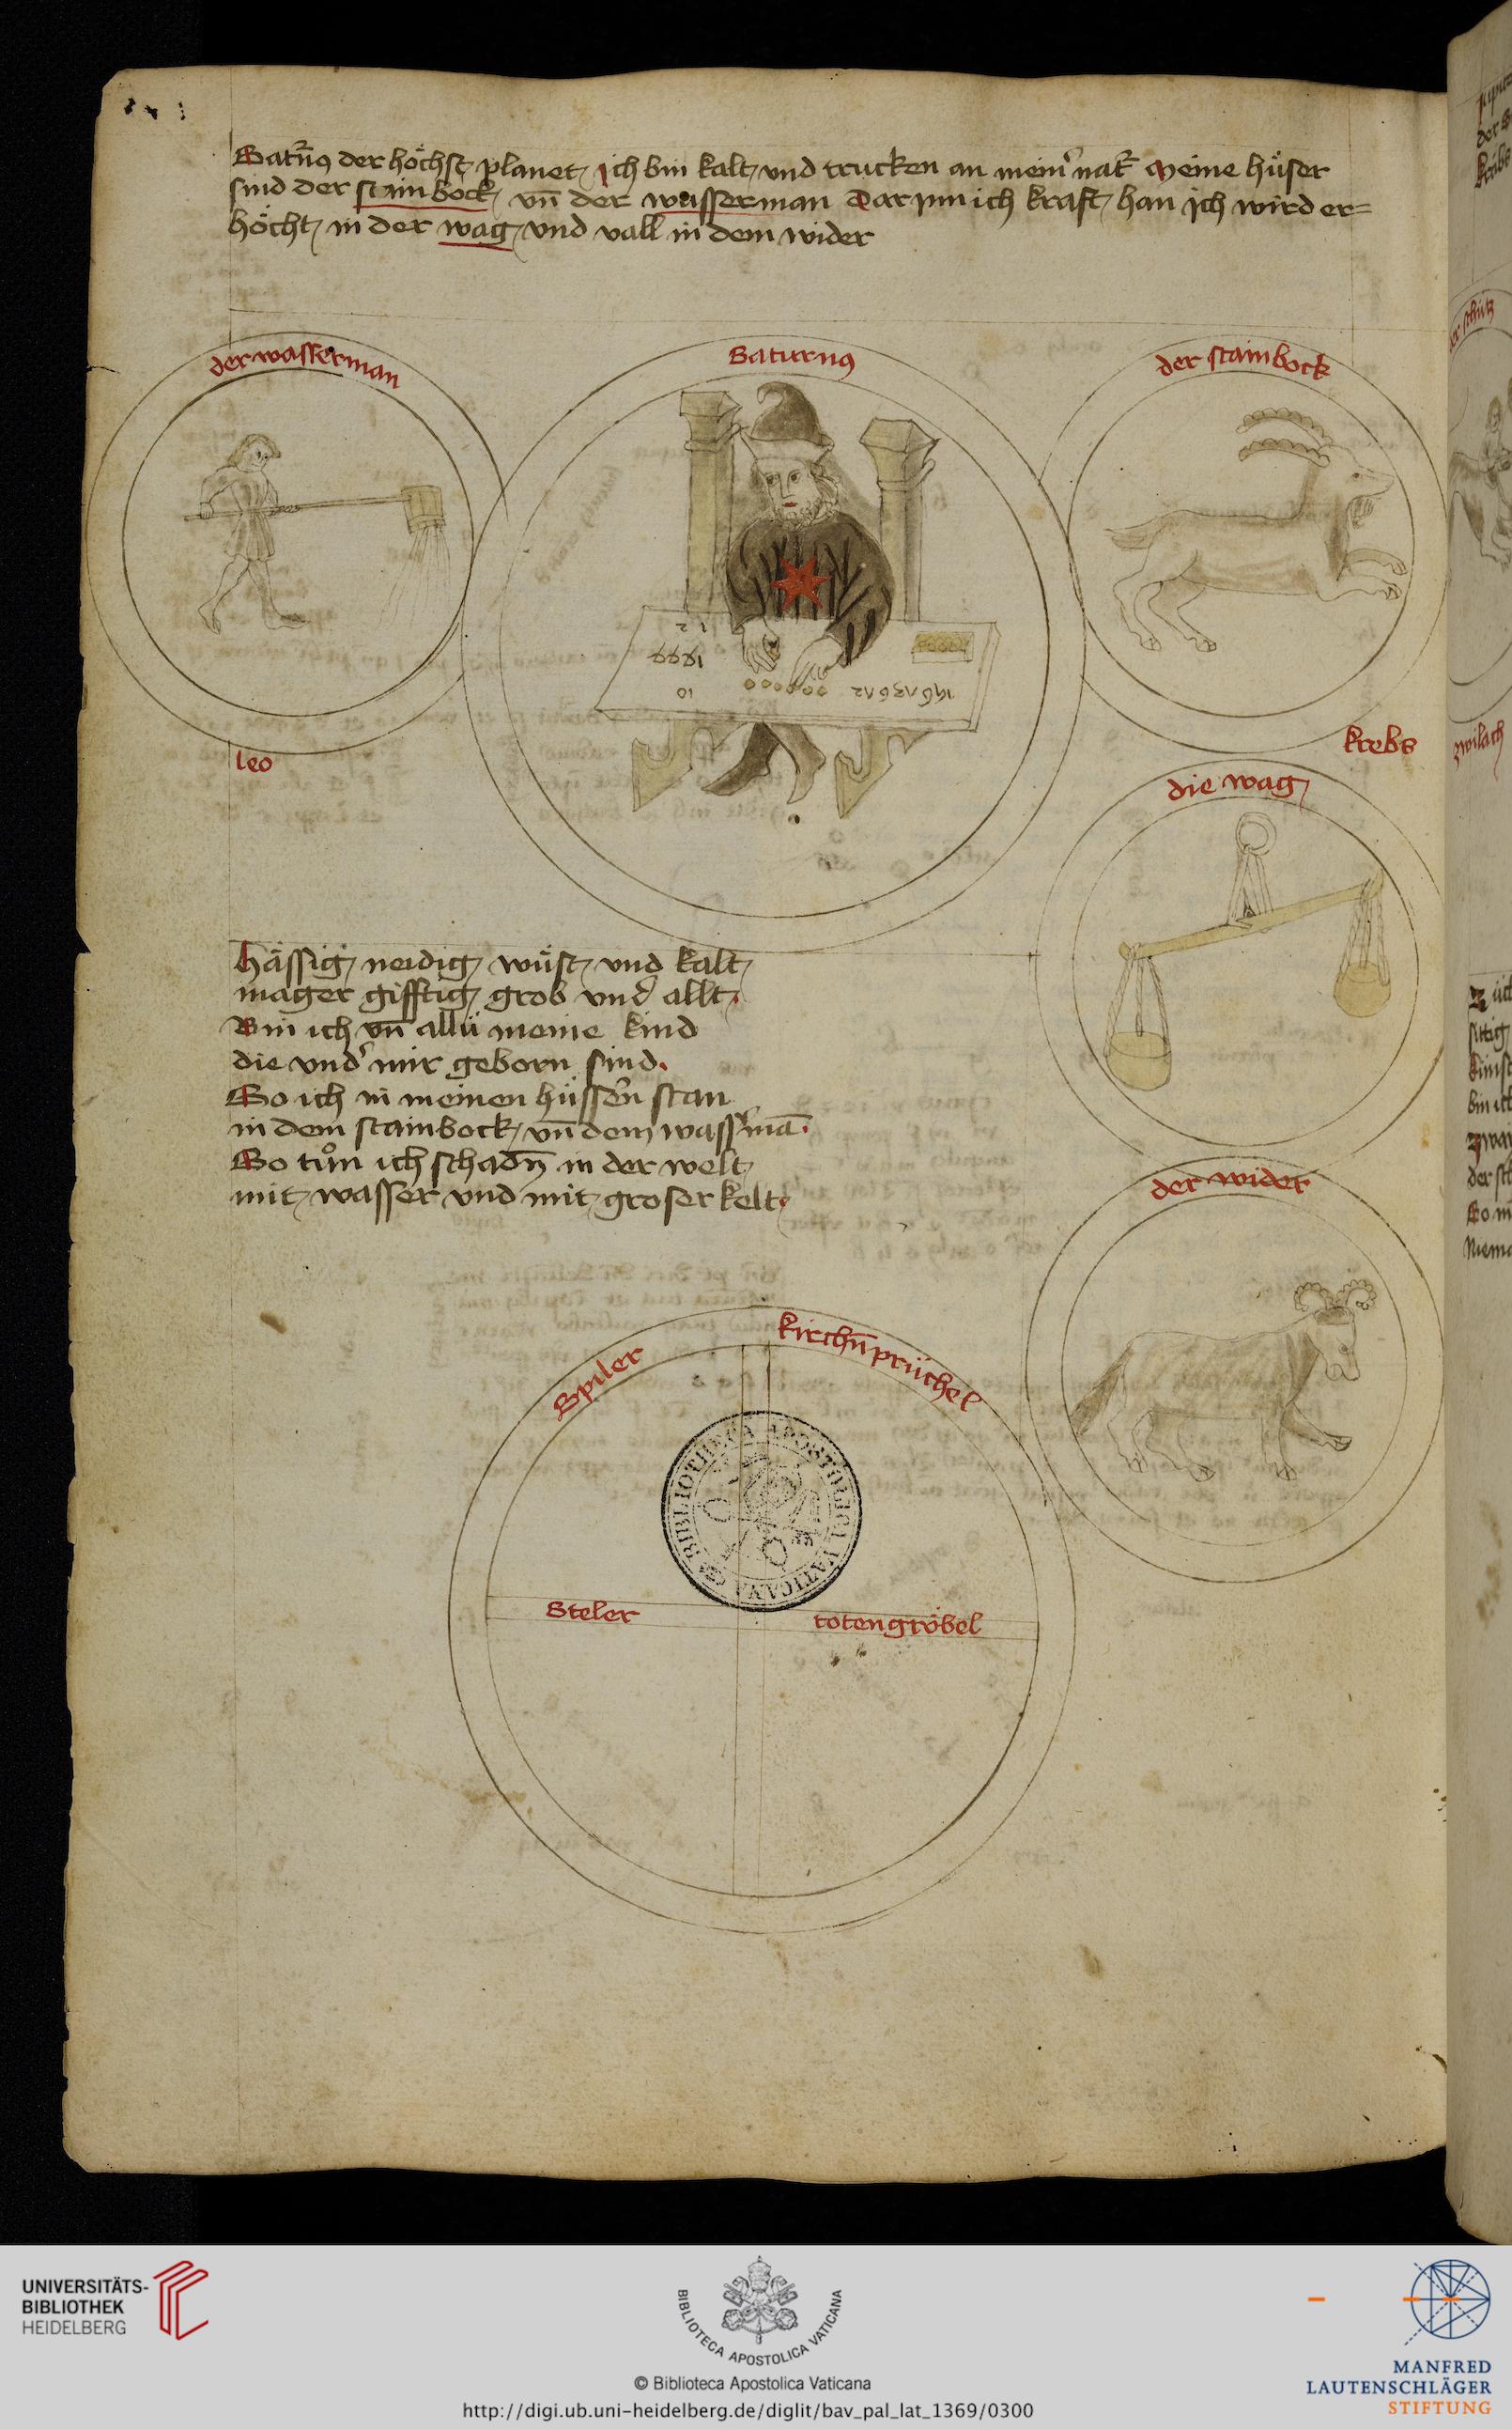 Satur̄nꝰ der hoͤchst planet Ich bin kalt und trucken an mein̾ nat̾ Meine huͤser
sind der stainbock vn̄ der wasserman Dar jnn ich kraft han Ich wird er=
hoͤcht in der wag vnd vall in dem wider
der wasserman
Saturnꝰ
der stainbock
12
1477
10
leo
krebs
die wag
Haͤssig neidig wuͤst vnd kalt
mager gifftig grob vnd allt
Bin ich vn̄ allü meine kind
die vnd̾ mir geborn sind
So ich in meinen hüssern̄ stan
in dem stainbock vn̄ dem wass̾mā
So tuͦn ich schadn̄ in der welt
mit wasser vnd mit groser kelt
der wider
Spiler
kirchn̄prüchel
BIBLIOTHECA APOSTOLICA VATICANA
Steler
totengröbel
der schütz
zwilach
UNIVERSITÄTS-
BIBLIOTHEK
HEIDELBERG
BIBLIOTECA APOSTOLICA VATICANA
© Biblioteca Apostolica Vaticana
http://digi.ub.uni-heidelberg.de/diglit/bav_pal_lat_1369/0300
MANFRED
LAUTENSCHLÄGER
STIFTUNG